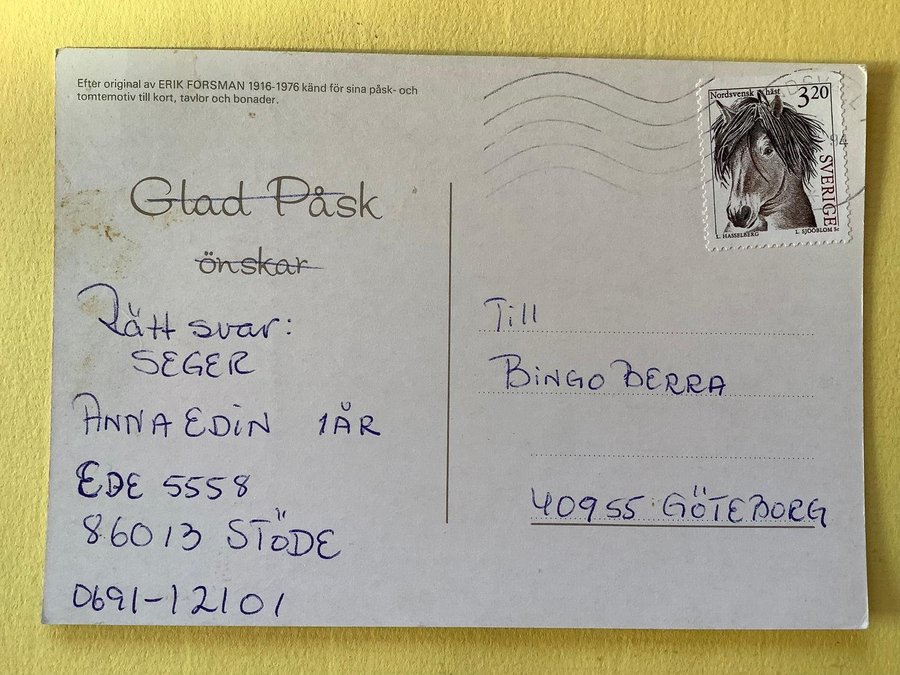 Efter original av ERIK FORSMAN 1916-1976 känd för sina påsk- och
tomtemotiv till kort, tavlor och bonader.
Glad Påsk
önskar
Rätt svar:
SEGER
ANNA EDIN 1ÅR
EDE 5558
86013 STÖDE
0691-12101
Nordsvensk häst
3.20
SVERIGE
L. HASSELBERG
L. SJÖÖBLOM Sc
94
Till
BINGO BERRA
40955 GÖTEBORG